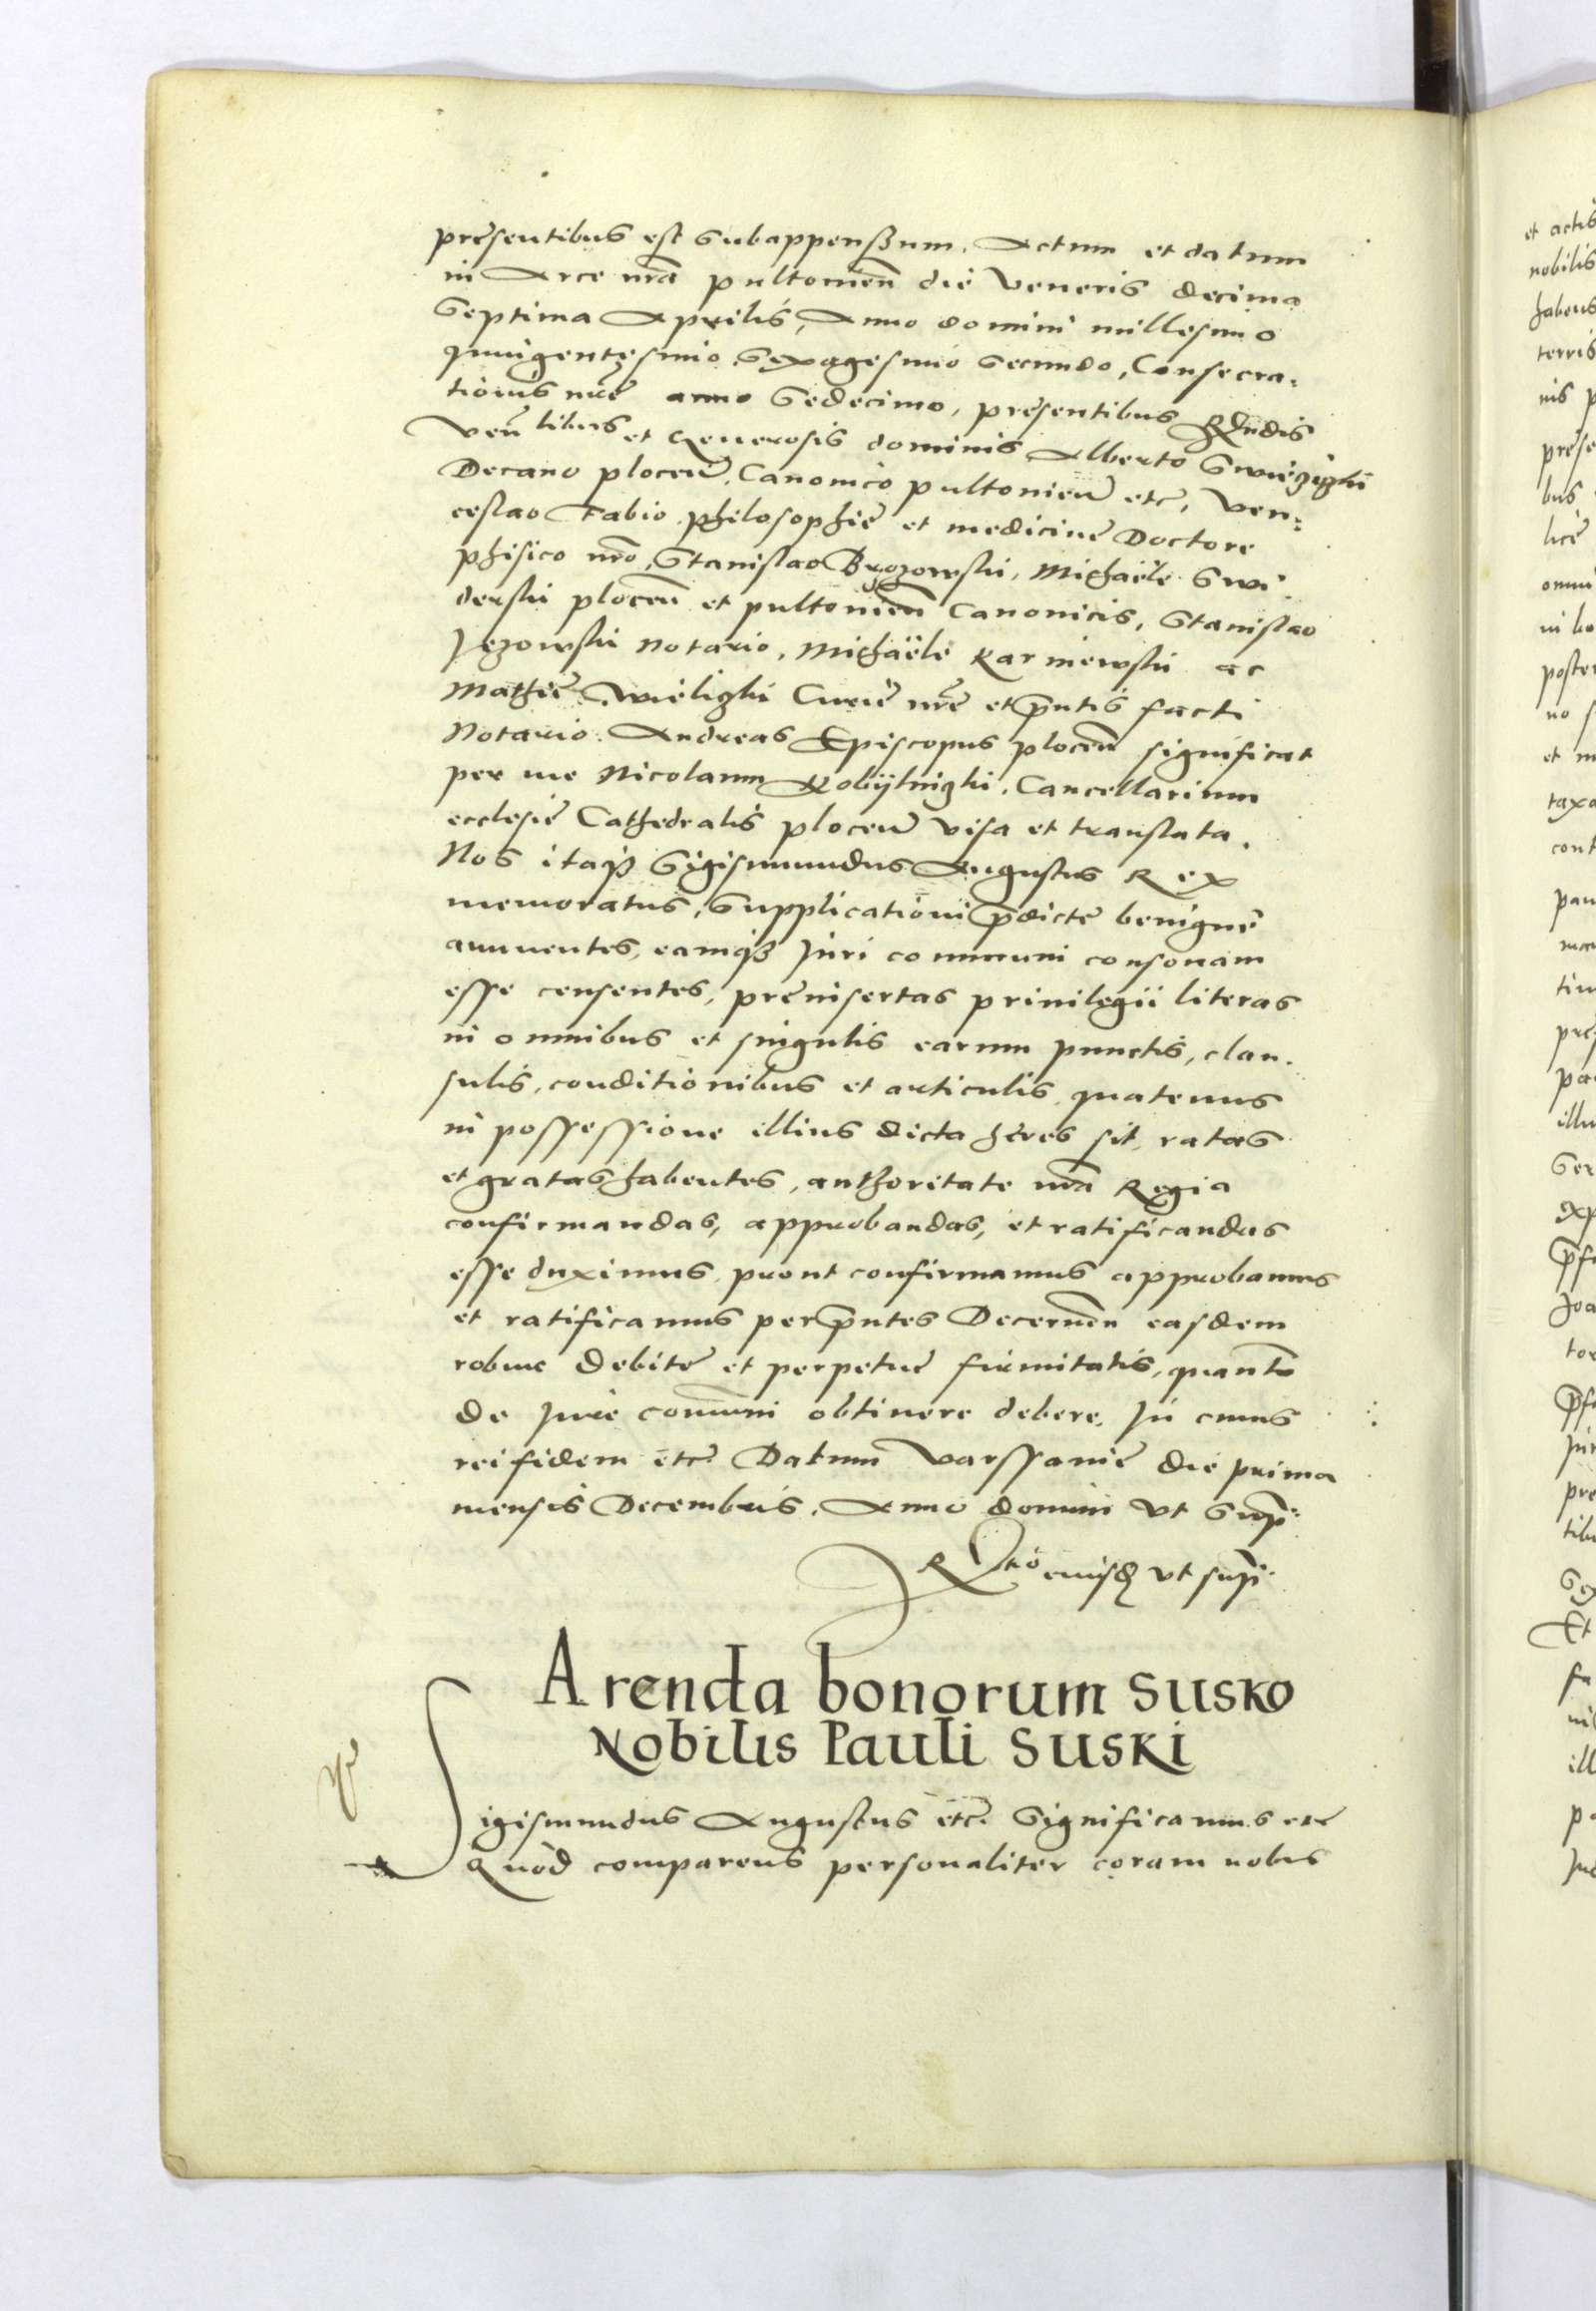 presentibus est subappensum. Actum et datum
in Arce nrã pultouieñ die Veneris decima
Septima Aprilis, Anno domini millesimo
quingentesimo sexagesimo secundo, Consecra-
tionis nrę anno Sedecimo, presentibus Rñdis
Veñlibus et Generosis dominis Alberto Swięziczki
Decano ploceñ. Canonico pultonieñ etc, Ven-
ceslao Fabio philosophię et medicinę Doctore
phisico nrõ, Stanislao Brzozowski, Michaële Swi
derski ploceñ et pultonieñ Canonicis, Stanislao
Jezowski Notario, Michaële Karniewski ac
Mathię Wieliczki Curię nrę et p̃ntis facti
Notario. Andreas Episcopus ploceñ significat
per me Nicolaum Kobÿlniczki. Cancellarium
ecclesię Cathedralis ploceñ visa et translata.
Nos itaqȝ Sigismmundus Augustus Rex
memoratus, Supplicationi p̃dictę benignę
annuentes, eamqȝ Juri communi consonam
esse censentes, preinsertas priuilegii literas
in omnibus et singulis earum punctis, clau-
sulis, conditionibus et articulis, quatenus
in possessione illius dicta hęres sit, ratas
et gratas habentes, authoritate nrã Regia
confirmandas, approbandas, et ratificandas
esse duximus, prout confirmamus approbamus
et ratificamus per p̃ntes Decerneñ easdem
robur debitę et perpetuę firmitatis, quantũ
de Jure com̃uni obtinere debere. In cuius
rei fidem etc. Datum Varssauię die prima
mensis Decembris. Anno domini vt Sup̃.
Rtio eiusd vt sup̃.
Arenda bonorum Susko
Nobilis Pauli Suski
Sigismundus Augustus etc. Significamus etc
Quod comparens personaliter coram nobis